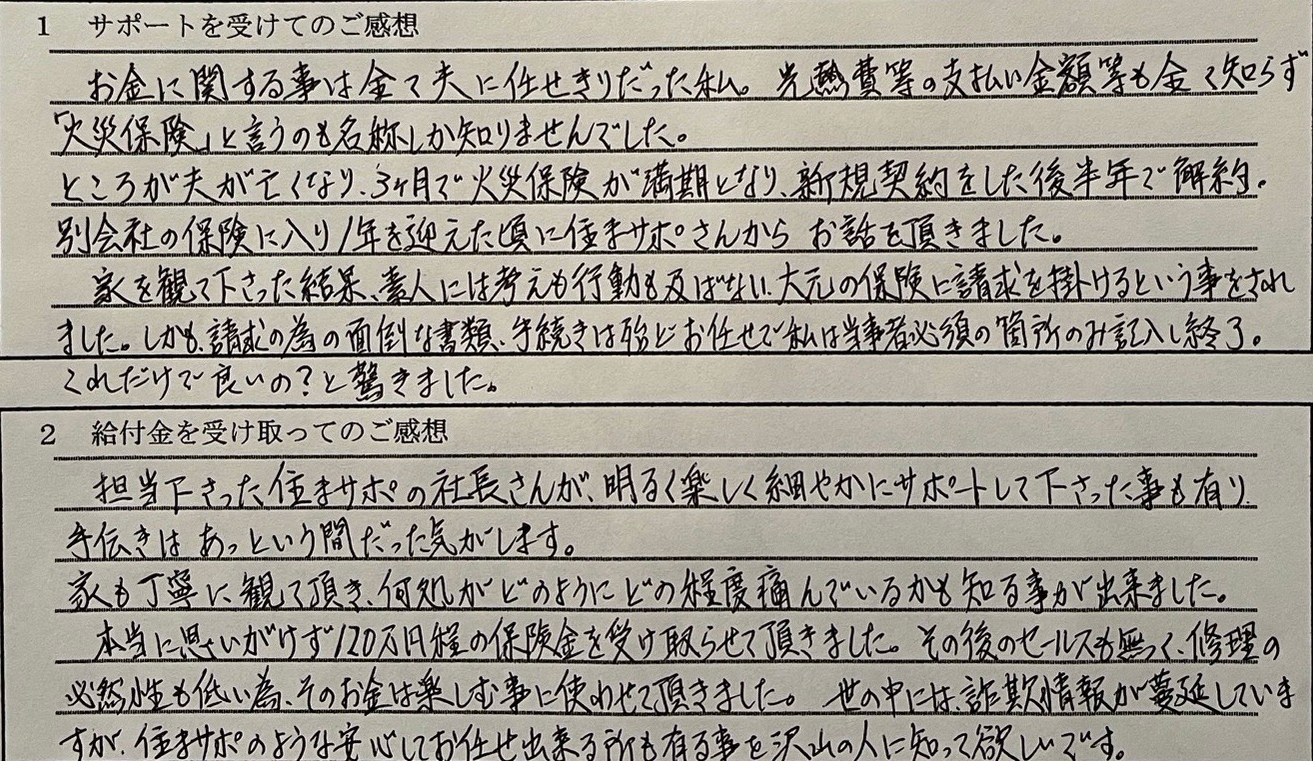 1 サポートを受けてのご感想
お金に関する事は全て夫に任せきりだった私。光熱費等の支払い金額等も全く知らず
「火災保険」と言うのも名称しか知りませんでした。
ところが夫が亡くなり、3ヶ月で火災保険が満期となり、新規契約をした後半年で解約。
別会社の保険に入り1年を迎えた頃に住まサポさんから お話を頂きました。
家を観て下さった結果、素人には考えも行動も及ばない、大元の保険に請求を掛けるという事をされ
ました。しかも、請求の為の面倒な書類、手続きは殆どお任せで私は当事者必須の箇所のみ記入し終了。
これだけで良いの?と驚きました。
2 給付金を受け取ってのご感想
担当下さった住まサポの社長さんが、明るく楽しく細やかにサポートして下さった事も有り、
手伝きは あっという間だった気がします。
家も丁寧に観て頂き、何処がどのようにどの程度痛んでいるかも知る事が出来ました。
本当に思いがけず120万円程の保険金を受け取らせて頂きました。その後のセールスも無く、修理の
必然性も低い為、そのお金は楽しむ事に使わせて頂きました。 世の中には、詐欺情報が蔓延していま
すが、住まサポのような安心してお任せ出来る所も有る事を沢山の人に知って欲しいです。